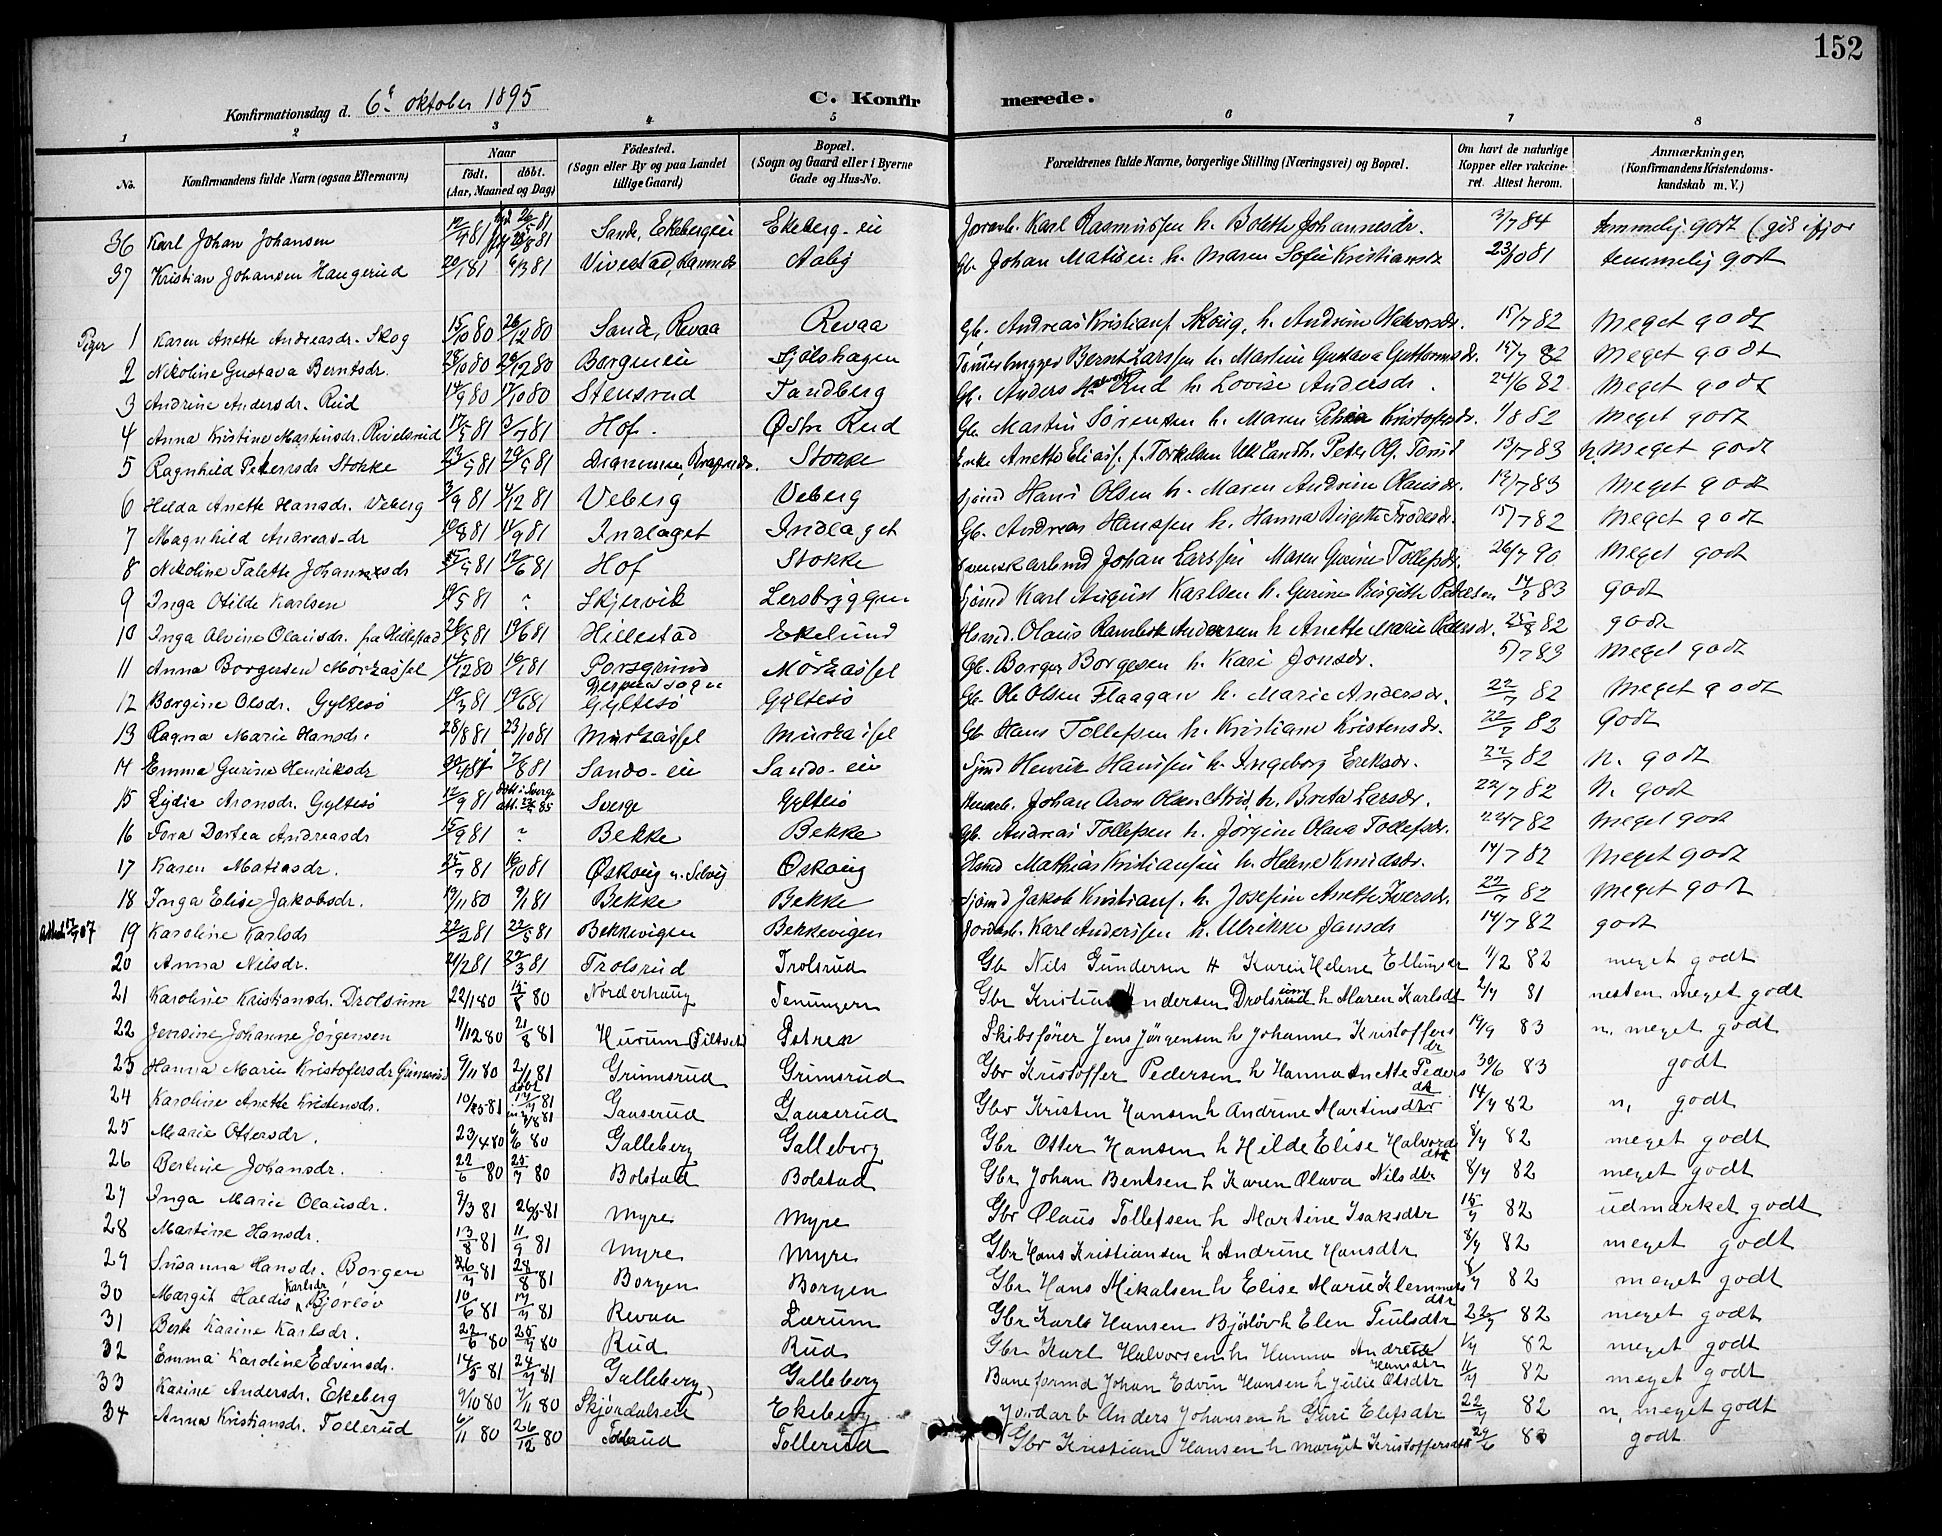 152
Konfirmationsdag d. 6te oktober 1895 C. Konfirmerede.
1 2 3 4 5 6 7 8
No. Konfirmandens fulde Navn (ogsaa Efternavn) Naar födt. döbt. (Aar, Maaned og Dag) Födested. (Sogn eller By og paa Landet tillige Gaard) Bopæl. (Sogn og Gaard eller i Byerne Gade og Hus-No. Forældrenes fulde Navne, borgerlige Stilling (Næringsvei) og Bopæl. Om havt de naturlige Kopper eller vakcineret. Attest herom. Anmærkninger, (Konfirmandens Kristendomskundskab m. V.)
36 Karl Johan Johansen Sande, Ekebergeie Ekeberg-eie Jordarb. Karl Rasmussen h. Bolette Johannesdr. 3/7 84 temmelig godt (gik ifjor
37 Kristian Johansen Haugerud 20/1 81 6/3 81 Vivestad, Ramnes Aaby Gb. Johan Matisen h. Maren Sofie Kristiansdr 23/10 81 temmelig godt
Piger 1 Karen Anette Andreasdr. Skog 15/10 80 26/12 80 Sande, Revaa Revaa Gb. Andreas Kristians. Skoug, h. Andrine Halvorsdr. 15/7 82 Meget godt
2 Nikoline Gustava Berntsdr. 28/10 80 26/12 80 Borgeneie Fjölshagen Tömmerhugger Bernt Larssen h. Martine Gustava Guttormsdr. 15/7 82 Meget godt
3 Andrine Andersdr. Rud 14/9 80 17/10 80 Stensrud Tandberg Gb. Anders Halvors Rud h. Lovise Andersdr. 24/6 82 Meget godt
4 Anna Kristine Martinsdr. 17/5 81 3/7 81 Hof. Östre Rud Gb. Martin Sörensen h. Maren Kristofersdr. 1/8 82 Meget godt
5 Ragnhild Petersdr Stokke 29/9 81 Drammen, Bragernes. Stokke Enke Anette Elias. f. Torkelsen 13/7 83 n. Meget godt
6 Helda Anette Hansdr. Veberg 3/9 81 4/12 81 Veberg Veberg Sjömd Hans Olsen h. Maren Andrine Olausdr. 12/7 83 Meget godt
7 Magnhild Andreas-dr 10/8 81 11/9 81 Indlaget Indlaget Gb. Andreas Hanssen h. Hanna Birgitte Frodesdr. 15/7 82 Meget godt
8 Nikoline Talette Johannesdr 12/6 81 Hof Stokke Johan Larssen Maren Gurine Tollefsdr. 26/7 90 Meget godt
9 Inga Otilde Karlsen 19/5 81 ? Skjervik Lersbryggen Sjömd Karl August Karlsen h. Gurine Birgitte Petersen 14/7 83 godt
10 Inga Alvine Olausdr. fra Hillestad 26/5 81 19/6 81 Hillestad Ekelund Hsmd. Olaus Andersen h Anette Marie Pedersdr. 25/8 82 godt
11 Anna Borgersen Mörkassel 14/12 80 16/1 81 Porsgrund Gjerpen sogn Mörkassel Gb. Borger Borgesen h. Kari Jonsdr. 5/7 83 Meget godt
12 Borgine Olsdr. Gyltesö 10/3 81 19/6 81 Gyltesö Gyltesö Gb. Ole Olsen Flaagan h. Marie Andersdr. 22/7 82 Meget godt
13 Ragna Marie Hansdr. 28/8 81 23/10 81 Mörkassel Mörkassel Gb. Hans Tollefsen h. Kristiane Kristensdr. 22/7 82 Godt
14 Emma Gurine Henriksdr 7/8 81 Sando-eie Sando-eie Sjmd Henrik Hanssen h. Ingeborg Eriksdr. 22/7 82 n. godt
15 Lydia Aronsdr. Gyltesö 12/9 81 döbt i Sverge Sverge Gyltesö Johan Aron Olsen h. Breta Larsdr. 22/7 82 N. godt
16 Tora Dortea Andreasdr 15/9 81 ? Bekke Bekke Gb. Andreas Tollefsen h. Jörgine Olava Tollefsdr. 22/7 82 Meget godt
17 Karen Matiasdr. 25/7 81 16/10 81 Öskoug n. Selvig Öskoug Hsmd Mathias Kristiansen h. Helene Knudsdr. 14/7 82 Meget godt
18 Inga Elise Jakobsdr. 19/11 80 9/1 81 Bekke Bekke Sjömd Jakob Kristians. h. Josefine Anette Iversdr. 22/7 82 Meget godt
19 Karoline Karlsdr 22/2 81 22/5 81 Bekkevigen Bekkevigen Jordarb. Karl Anderssen h. Ulrikke Jansdr 14/7 82 godt
20 Anna Nilsdr. 21/2 81 27/3 81 Trolsrud Trolsrud Gb Nils Gundersen H Karen Helene Ellingsdr 11/2 82 meget godt
21 Karoline Kristiansdr. Drolsum 22/1 80 15/8 80 Norderhaug Tenungen Gbr Kristian Andersen Drolsum h Maren Karlsdt 2/7 81 nesten meget godt
22 Jensine Johanne Jörgensen 11/12 80 21/8 81 Hurum (Filtvet) Östre Skibsförer Jens Jörgensen h Johanne Kristoffersdr 19/9 83 n, meget godt
23 Hanna Marie Kristofersdr Grimsrud 9/11 80 2/1 81 Grimsrud Grimsrud Gbr Kristoffer Pedersen h Hanna Anette Pedersdt 30/6 83 godt
24 Karoline Anette Kristensdr. Gauserud Gauserud Gbr Kristen Hansen h Andrine Martinsdtr 14/7 82 n, godt
25 Marie Ottersdr. 23/4 80 6/6 80 Galleberg Galleberg Gbr Otter Hansen h Hilde Elise Halvorsdtr 8/7 82 meget godt
26 Bertine Johansdr. 22/6 80 25/7 80 Bolstad Bolstad Gbr Johan Bentsen h Karen Olava Nilsdtr 8/7 82 meget godt
27 Inga Marie Olausdr. 9/3 81 26/5 81 Myre Myre Gbr Olaus Tollefsen h Martine Isaksdtr 15/7 82 udmærket godt
28 Martine Hansdr. 13/8 81 11/9 81 Myre Myre Gbr Hans Kristiansen h Andrine Hansdtr 8/7 82 meget godt
29 Susanna Hansdr. Borgen 26/7 81 28/8 81 Borgen Borgen Gbr Hans Mikalsen h Elise Marie Klemmetsdtr 8/7 82 meget godt
30 Margit Haldis Karlsdr Bjorlöv 10/6 81 17/7 81 Revaa Lærum Gbr Karls Hansen Bjölöv h Elen Trulsdtr 22/7 82 meget godt
31 Berte Karine Karlsdr. 22/6 80 25/7 80 Rud Rud Gbr Karl Halvorsen h Hanna Andrea Hansdtr 1/7 82 meget godt
32 Emma Karoline Edvinsdr. 14/5 81 24/7 81 Galleberg Galleberg Baneformd Johan Edvin Hansen h Julie Olsdtr 11/7 82 meget godt
33 Karine Andersdr. Ekeberg 9/10 80 7/11 80 Skjördalsen Ekeberg Jordarb Anders Johansen h Guri Elefsdtr 22/7 82 n, meget godt
34 Anna Kristiansdr. Tollerud 6/11 80 26/12 80 Tollerud Tollerud Gbr Kristian Hansen h Margit Kristoffersdtr 29/6 83 godt